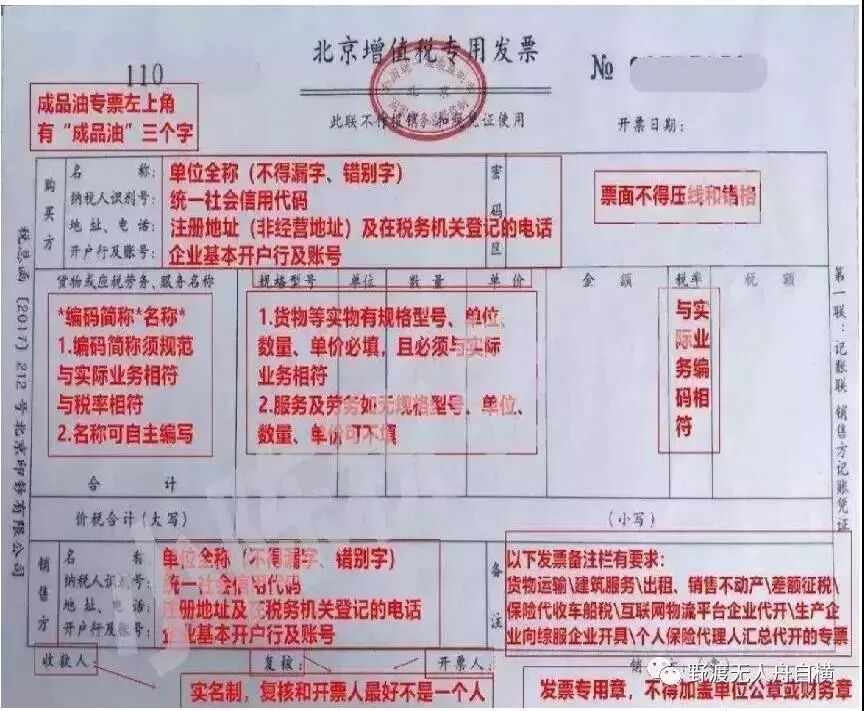 110
北京增值税专用发票
№
北京
成品油专票左上角
有“成品油”三个字
此联不作报销、扣税凭证使用
开票日期:
购买方
名称:
单位全称（不得漏字、错别字）
纳税人识别号:
统一社会信用代码
地址、电话:
注册地址（非经营地址）及在税务机关登记的电话
开户行及账号:
企业基本开户行及账号
密码区
票面不得压线和错格
货物或应税劳务、服务名称 规格型号 单位 数量 单价 金额 税率 税额
*编码简称*名称*
1.编码简称须规范
与实际业务相符
与税率相符
2.名称可自主编写
1.货物等实物有规格型号、单位、
数量、单价必填，且必须与实际
业务相符
2.服务及劳务如无规格型号、单位、
数量、单价可不填
与实际业务编码相符
合计
价税合计（大写）
（小写）
销售方
名称:
单位全称（不得漏字、错别字）
纳税人识别号:
统一社会信用代码
地址、电话:
注册地址及在税务机关登记的电话
开户行及账号:
企业基本开户行及账号
备注
以下发票备注栏有要求:
货物运输\建筑服务\出租、销售不动产\差额征税\
保险代收车船税\互联网物流平台企业代开\生产企
业向综服企业开具\个人保险代理人汇总代开的专票
收款人:
复核:
开票人:
实名制，复核和开票人最好不是一个人
发票专用章，不得加盖单位公章或财务章
税总函〔2017〕212号北京印钞有限公司
第一联：记账联 销售方记账凭证
野渡无人舟自横